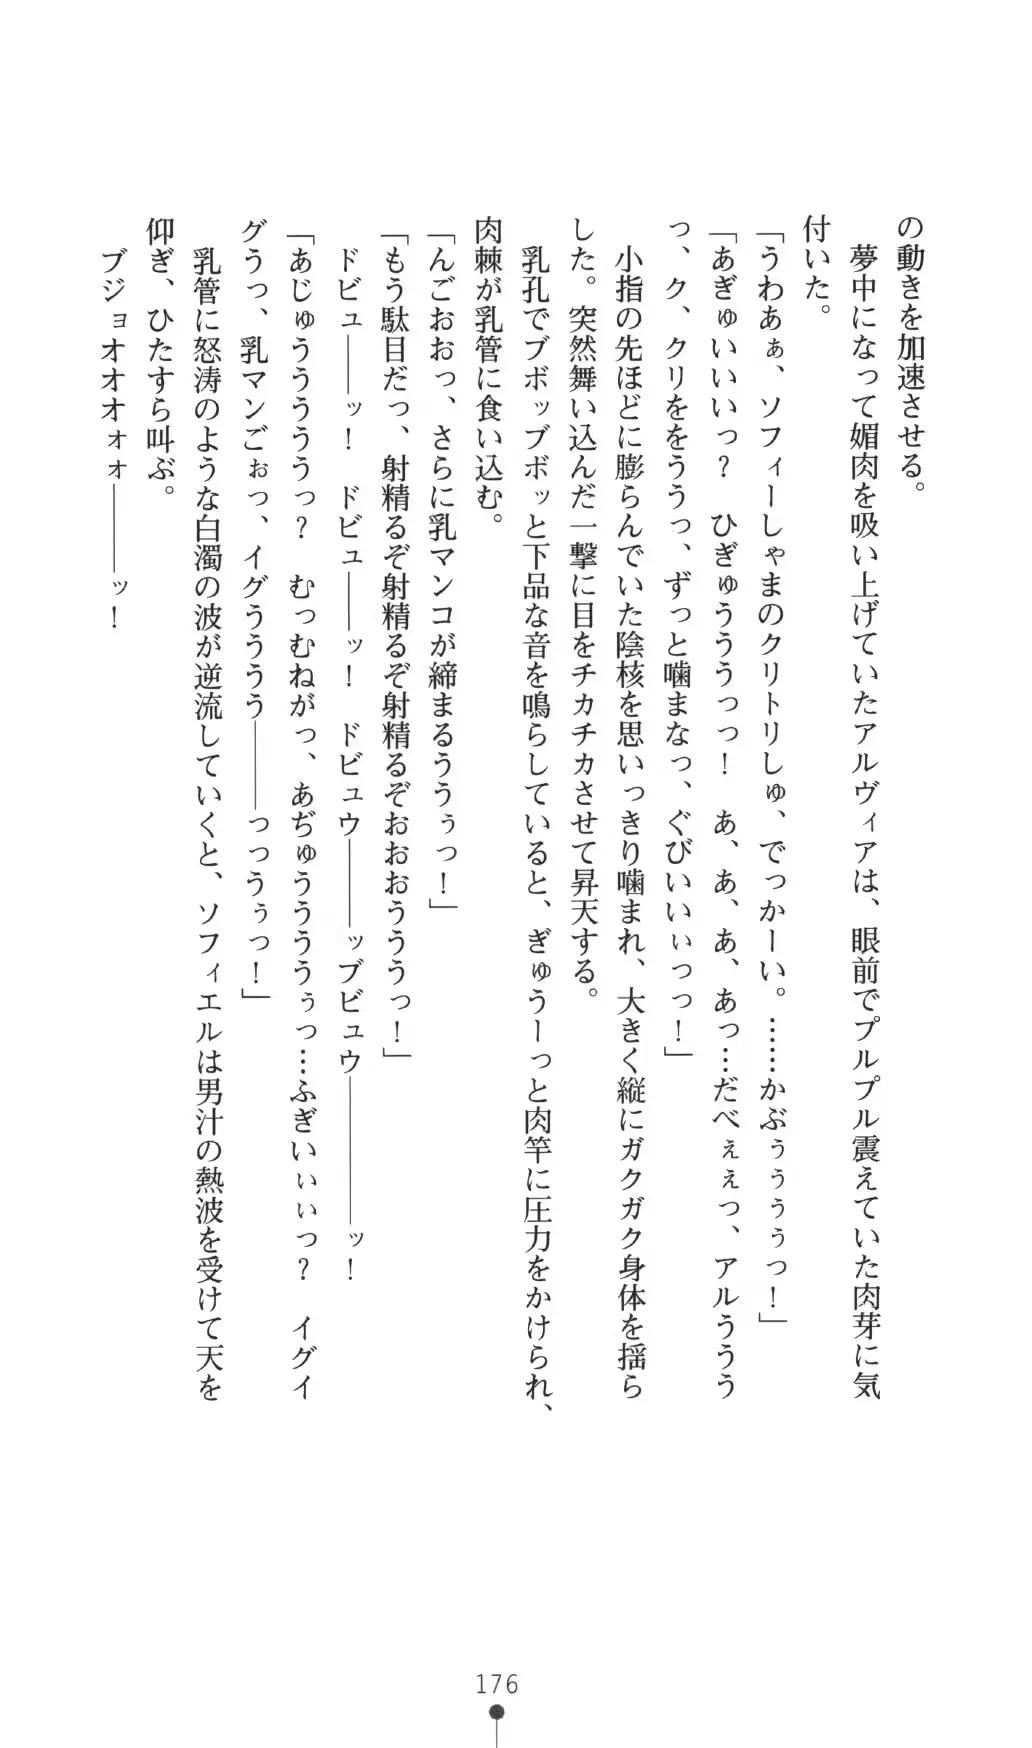 の動きを加速させる。
夢中になって媚肉を吸い上げていたアルヴィアは、眼前でプルプル震えていた肉芽に気
付いた。
「うわあぁ、ソフィーしゃまのクリトリしゅ、でっかーい。……かぶぅぅぅぅっ！」
「あぎゅいいいっ？　ひぎゅうううっっ！　あ、あ、あ、あっ…だべぇぇっ、アルううう
っ、ク、クリををううっ、ずっと噛まなっ、ぐびいいぃっっ！」
小指の先ほどに膨らんでいた陰核を思いっきり噛まれ、大きく縦にガクガク身体を揺ら
した。突然舞い込んだ一撃に目をチカチカさせて昇天する。
乳孔でブボッブボッと下品な音を鳴らしていると、ぎゅうーっと肉竿に圧力をかけられ、
肉棘が乳管に食い込む。
「んごおおっ、さらに乳マンコが締まるううぅっ！」
「もう駄目だっ、射精るぞ射精るぞ射精るぞおおおうううっ！」
ドビュ――ッ！　ドビュ――ッ！　ドビュウ―――ッブビュウ―――――ッ！
「あじゅうううううっ？　むっむねがっ、あぢゅううううぅっ…ふぎいぃぃっ？　イグイ
グうっ、乳マンごぉっ、イグうううう―――っっうぅっ！」
乳管に怒涛のような白濁の波が逆流していくと、ソフィエルは男汁の熱波を受けて天を
仰ぎ、ひたすら叫ぶ。
ブジョオオオォォ―――ッ！
176